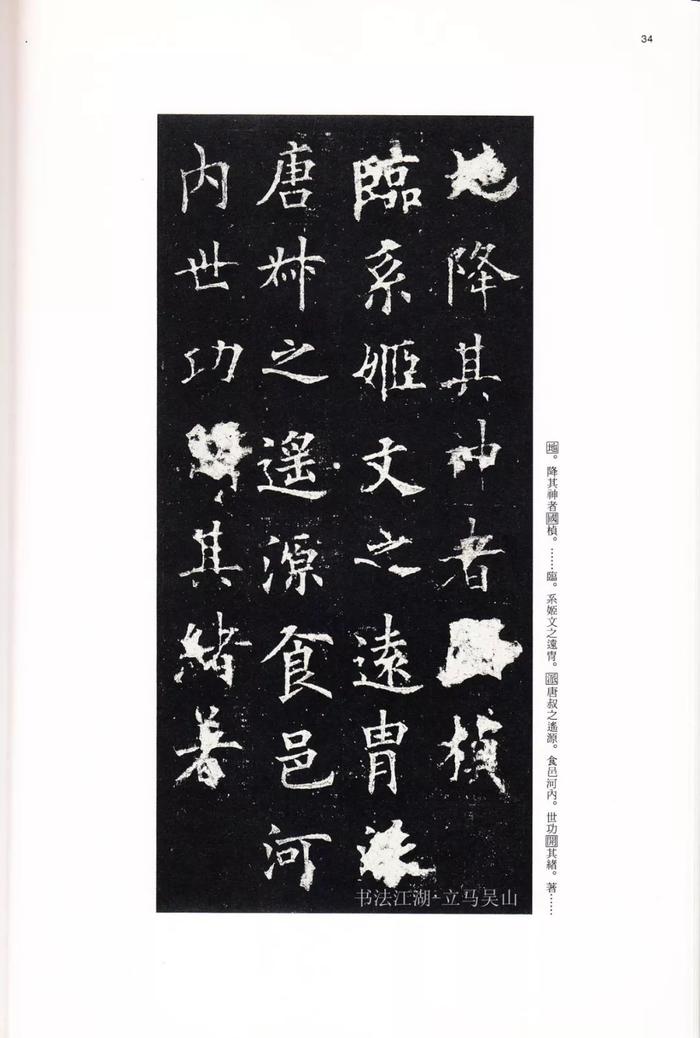 34
地降其神者國楨
臨系姬文之遠胄派
唐叔之遙源食邑河
内世功開其緒著
地。降其神者國楨。……臨。系姬文之遠胄。派唐叔之遙源。食邑河內。世功開其緒。著……
书法江湖·立马吴山